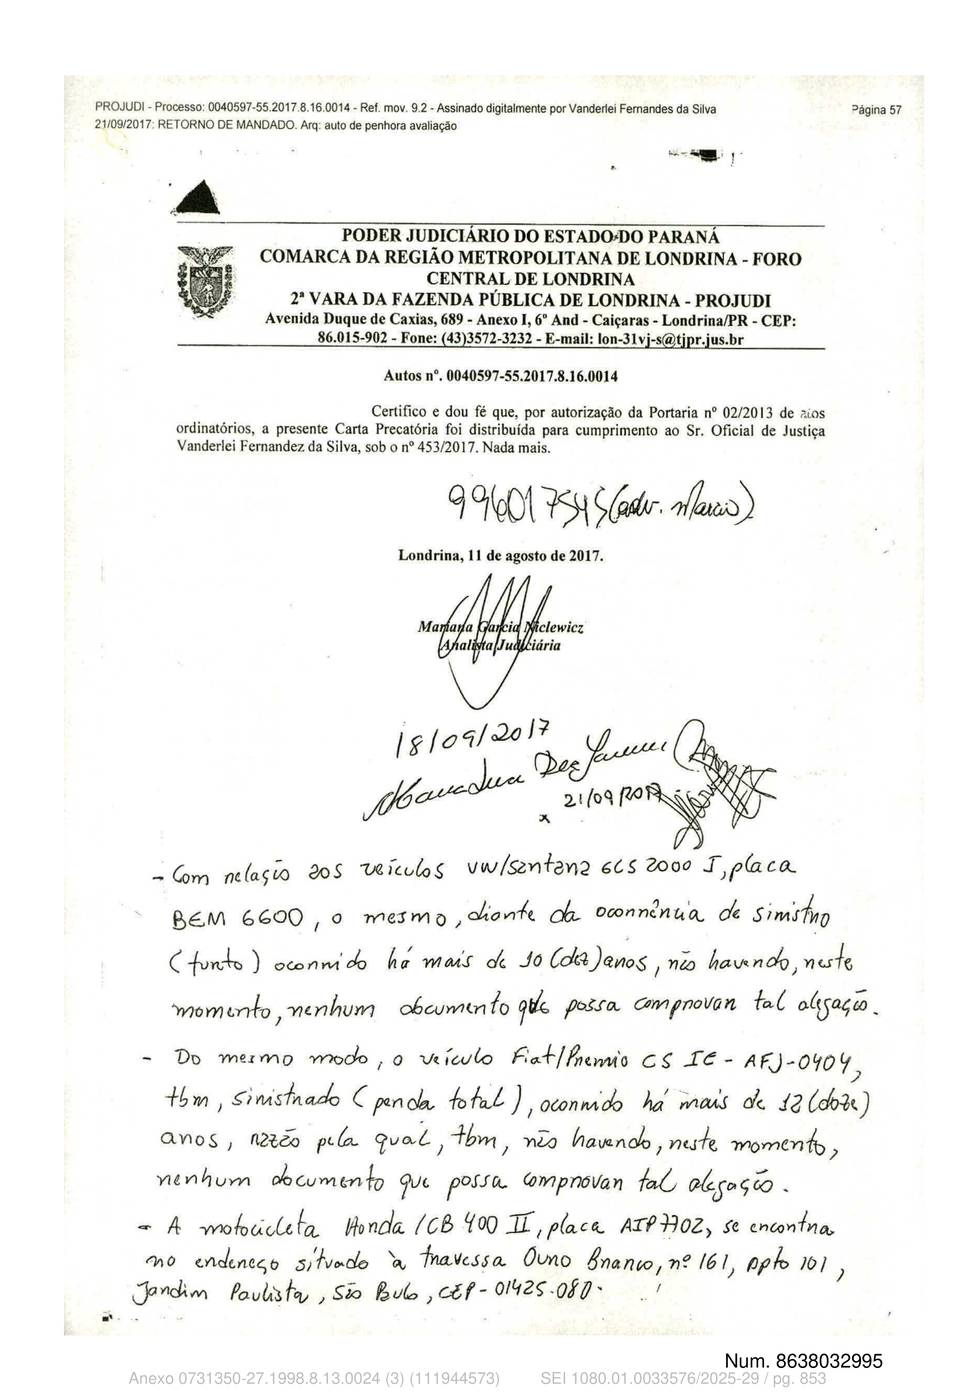 PROJUDI - Processo: 0040597-55.2017.8.16.0014 - Ref. mov. 9.2 - Assinado digitalmente por Vanderlei Fernandes da Silva
Página 57
21/09/2017: RETORNO DE MANDADO. Arq: auto de penhora avaliação
PODER JUDICIÁRIO DO ESTADO DO PARANÁ
COMARCA DA REGIÃO METROPOLITANA DE LONDRINA - FORO
CENTRAL DE LONDRINA
2ª VARA DA FAZENDA PÚBLICA DE LONDRINA - PROJUDI
Avenida Duque de Caxias, 689 - Anexo I, 6º And - Caiçaras - Londrina/PR - CEP:
86.015-902 - Fone: (43)3572-3232 - E-mail: lon-31vj-s@tjpr.jus.br
Autos nº. 0040597-55.2017.8.16.0014
Certifico e dou fé que, por autorização da Portaria nº 02/2013 de atos
ordinatórios, a presente Carta Precatória foi distribuída para cumprimento ao Sr. Oficial de Justiça
Vanderlei Fernandez da Silva, sob o nº 453/2017. Nada mais.
996017545 (adv. Marcio)
Londrina, 11 de agosto de 2017.
Mariana Garcia Niclewicz
Analista Judiciária
18/09/2017
21/09/2017
x
- Com relação aos veículos VW/Santana GLS 2000 I, placa
BEM 6600, o mesmo, diante da ocorrência de sinistro
(furto) ocorrido há mais de 10 (dez) anos, não havendo, neste
momento, nenhum documento que possa comprovar tal alegação.
- Do mesmo modo, o veículo Fiat/Premio CS IE - AFJ-0404,
tbm, sinistrado (perda total), ocorrido há mais de 12 (doze)
anos, razão pela qual, tbm, não havendo, neste momento,
nenhum documento que possa comprovar tal alegação.
- A motocicleta Honda/CB 400 II, placa AIP7702, se encontra
no endereço situado à travessa Ouro Branco, nº 161, apto 101,
Jardim Paulista, São Paulo, CEP - 01425-080.
Num. 8638032995
Anexo 0731350-27.1998.8.13.0024 (3) (111944573) SEI 1080.01.0033576/2025-29 / pg. 853